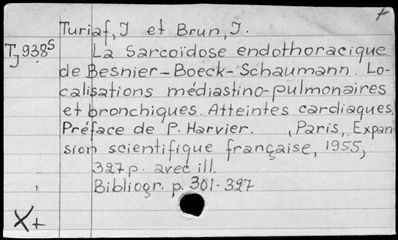 +
Turiaf, J et Brun, J.
Tj938S La Sarcoïdose endothoracique
de Besnier-Boeck-Schaumann. Lo-
calisations médiastino-pulmonaires
et bronchiques. Atteintes cardiaques.
Préface de P. Harvier. , Paris, Expan
sion scientifique française, 1955,
327 p. avec ill.
Bibliogr. p. 301-327
X+